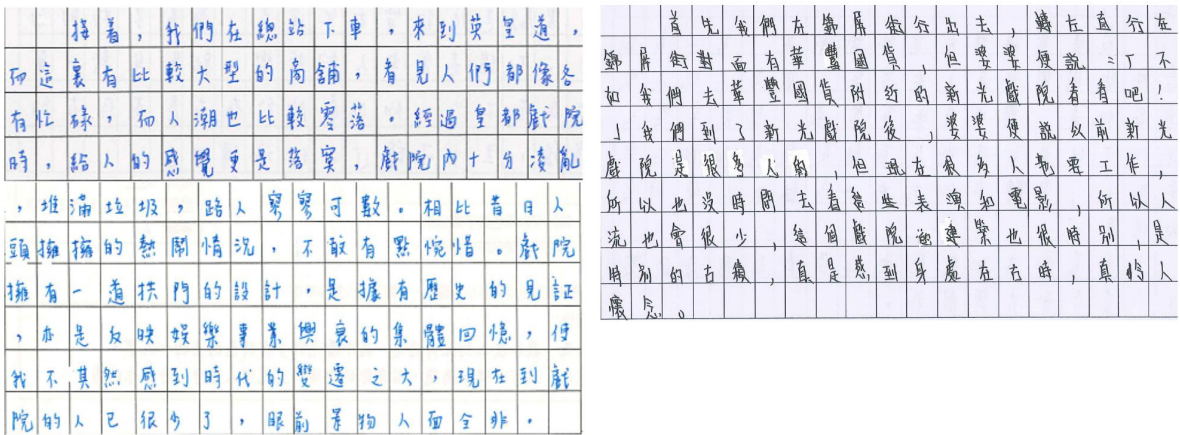 接着，我們在總站下車，來到英皇道，
而這裏有比較大型的商舖，看見人們都像各
有忙碌，而人潮也比較零落。經過皇都戲院
時，給人的感覺更是落寞，戲院內十分凌亂
，堆滿垃圾，路人寥寥可數。相比昔日人
頭擁擁的熱鬧情況，不敢有點惋惜。戲院
擁有一道拱門的設計，是據有歷史的見証
，亦是反映娛樂事業興衰的集體回憶，使
我不其然感到時代的變遷之大，現在到戲
院的人已很少了，眼前景物人面全非。
首先我們在錦屏街行出去，轉左直行在
錦屏街對面有華豐國貨，但婆婆便說：「不
如我們去華豐國貨附近的新光戲院看看吧！
」我們到了新光戲院後，婆婆便說以前新光
戲院是很多人的，但現在很多人都要工作，
所以也沒時間去看這些表演和電影，所以人
流也會很少，這個戲院的建築也很特別，是
特別的古蹟，真是感到身處在古時，真令人
懷念。